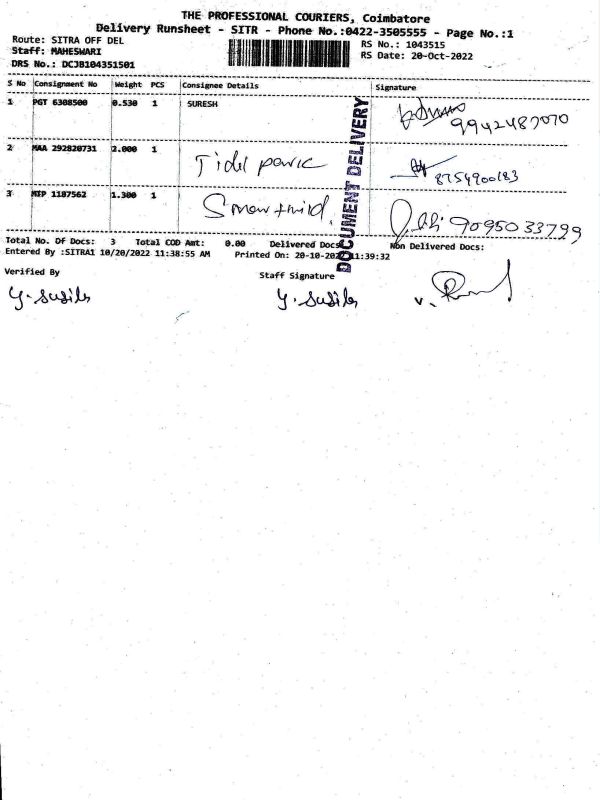 THE PROFESSIONAL COURIERS, Coimbatore
Delivery Runsheet - SITR - Phone No.:0422-3505555 - Page No.:1
Route: SITRA OFF DEL
RS No.: 1043515
Staff: MAHESWARI
RS Date: 20-Oct-2022
DRS No.: DCJB104351501
S No Consignment No Weight PCS Consignee Details Signature
1 PGT 6308500 0.530 1 SURESH
9942487070
2 MAA 292820731 2.000 1 Tidel
8754900183
3 MEP 1187562 1.300 1
9095033799
DOCUMENT DELIVERY
Total No. Of Docs: 3 Total COD Amt: 0.00 Delivered Docs Non Delivered Docs:
Entered By :SITRA1 10/20/2022 11:38:55 AM Printed On: 20-10-2022 11:39:32
Verified By Staff Signature
Y. Susila Y. Susila